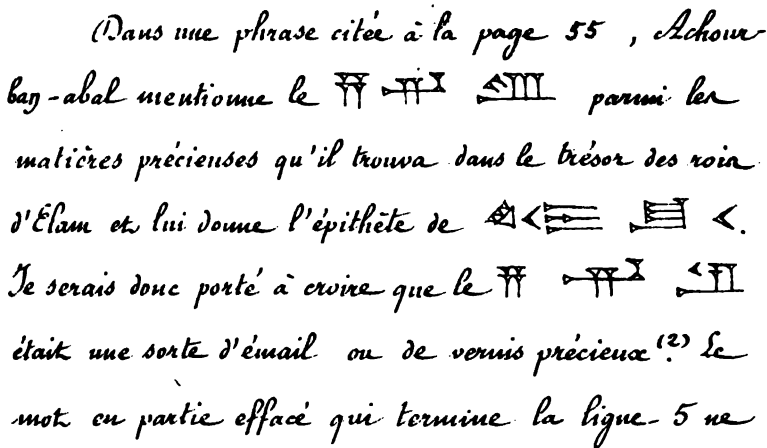 (Dans une phrase citée à la page 55 , Achour-
ban-abal mentionne le parmi les
matières précieuses qu'il trouva dans le trésor des rois
d'Élam et lui donne l'épithète de .
Je serais donc porté à croire que le
était une sorte d'émail ou de vernis précieux (?) Le
mot en partie effacé qui termine la ligne 5 ne